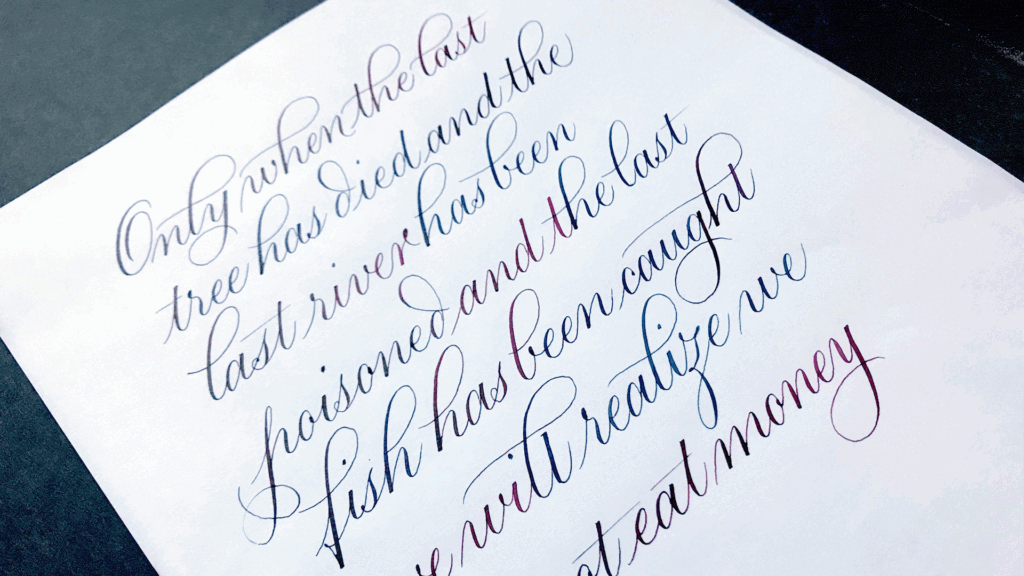 Only when the last
tree has died and the
last river has been
poisoned and the last
fish has been caught
will realize we
eat money